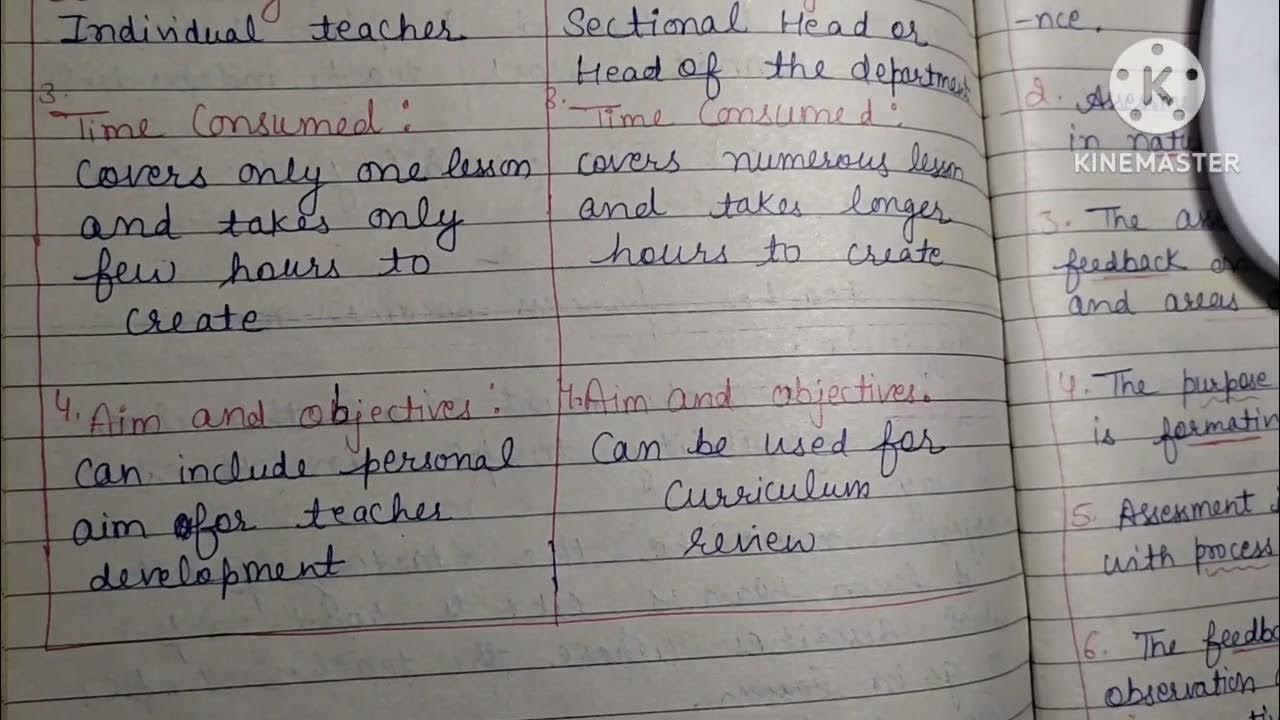 Individual teacher
3.
Time Consumed :
Covers only one lesson
and takes only
few hours to
create
4. Aim and objectives :
Can include personal
aim for teacher
development
Sectional Head or
Head of the department
3.
Time Consumed :
covers numerous lesson
and takes longer
hours to create
4. Aim and objectives :
Can be used for
Curriculum
review
-nce.
2.
in
3. The
feedback
and areas
4. The purpose
is
5. Assessment
with process
6. The
observation
K
KINEMASTER